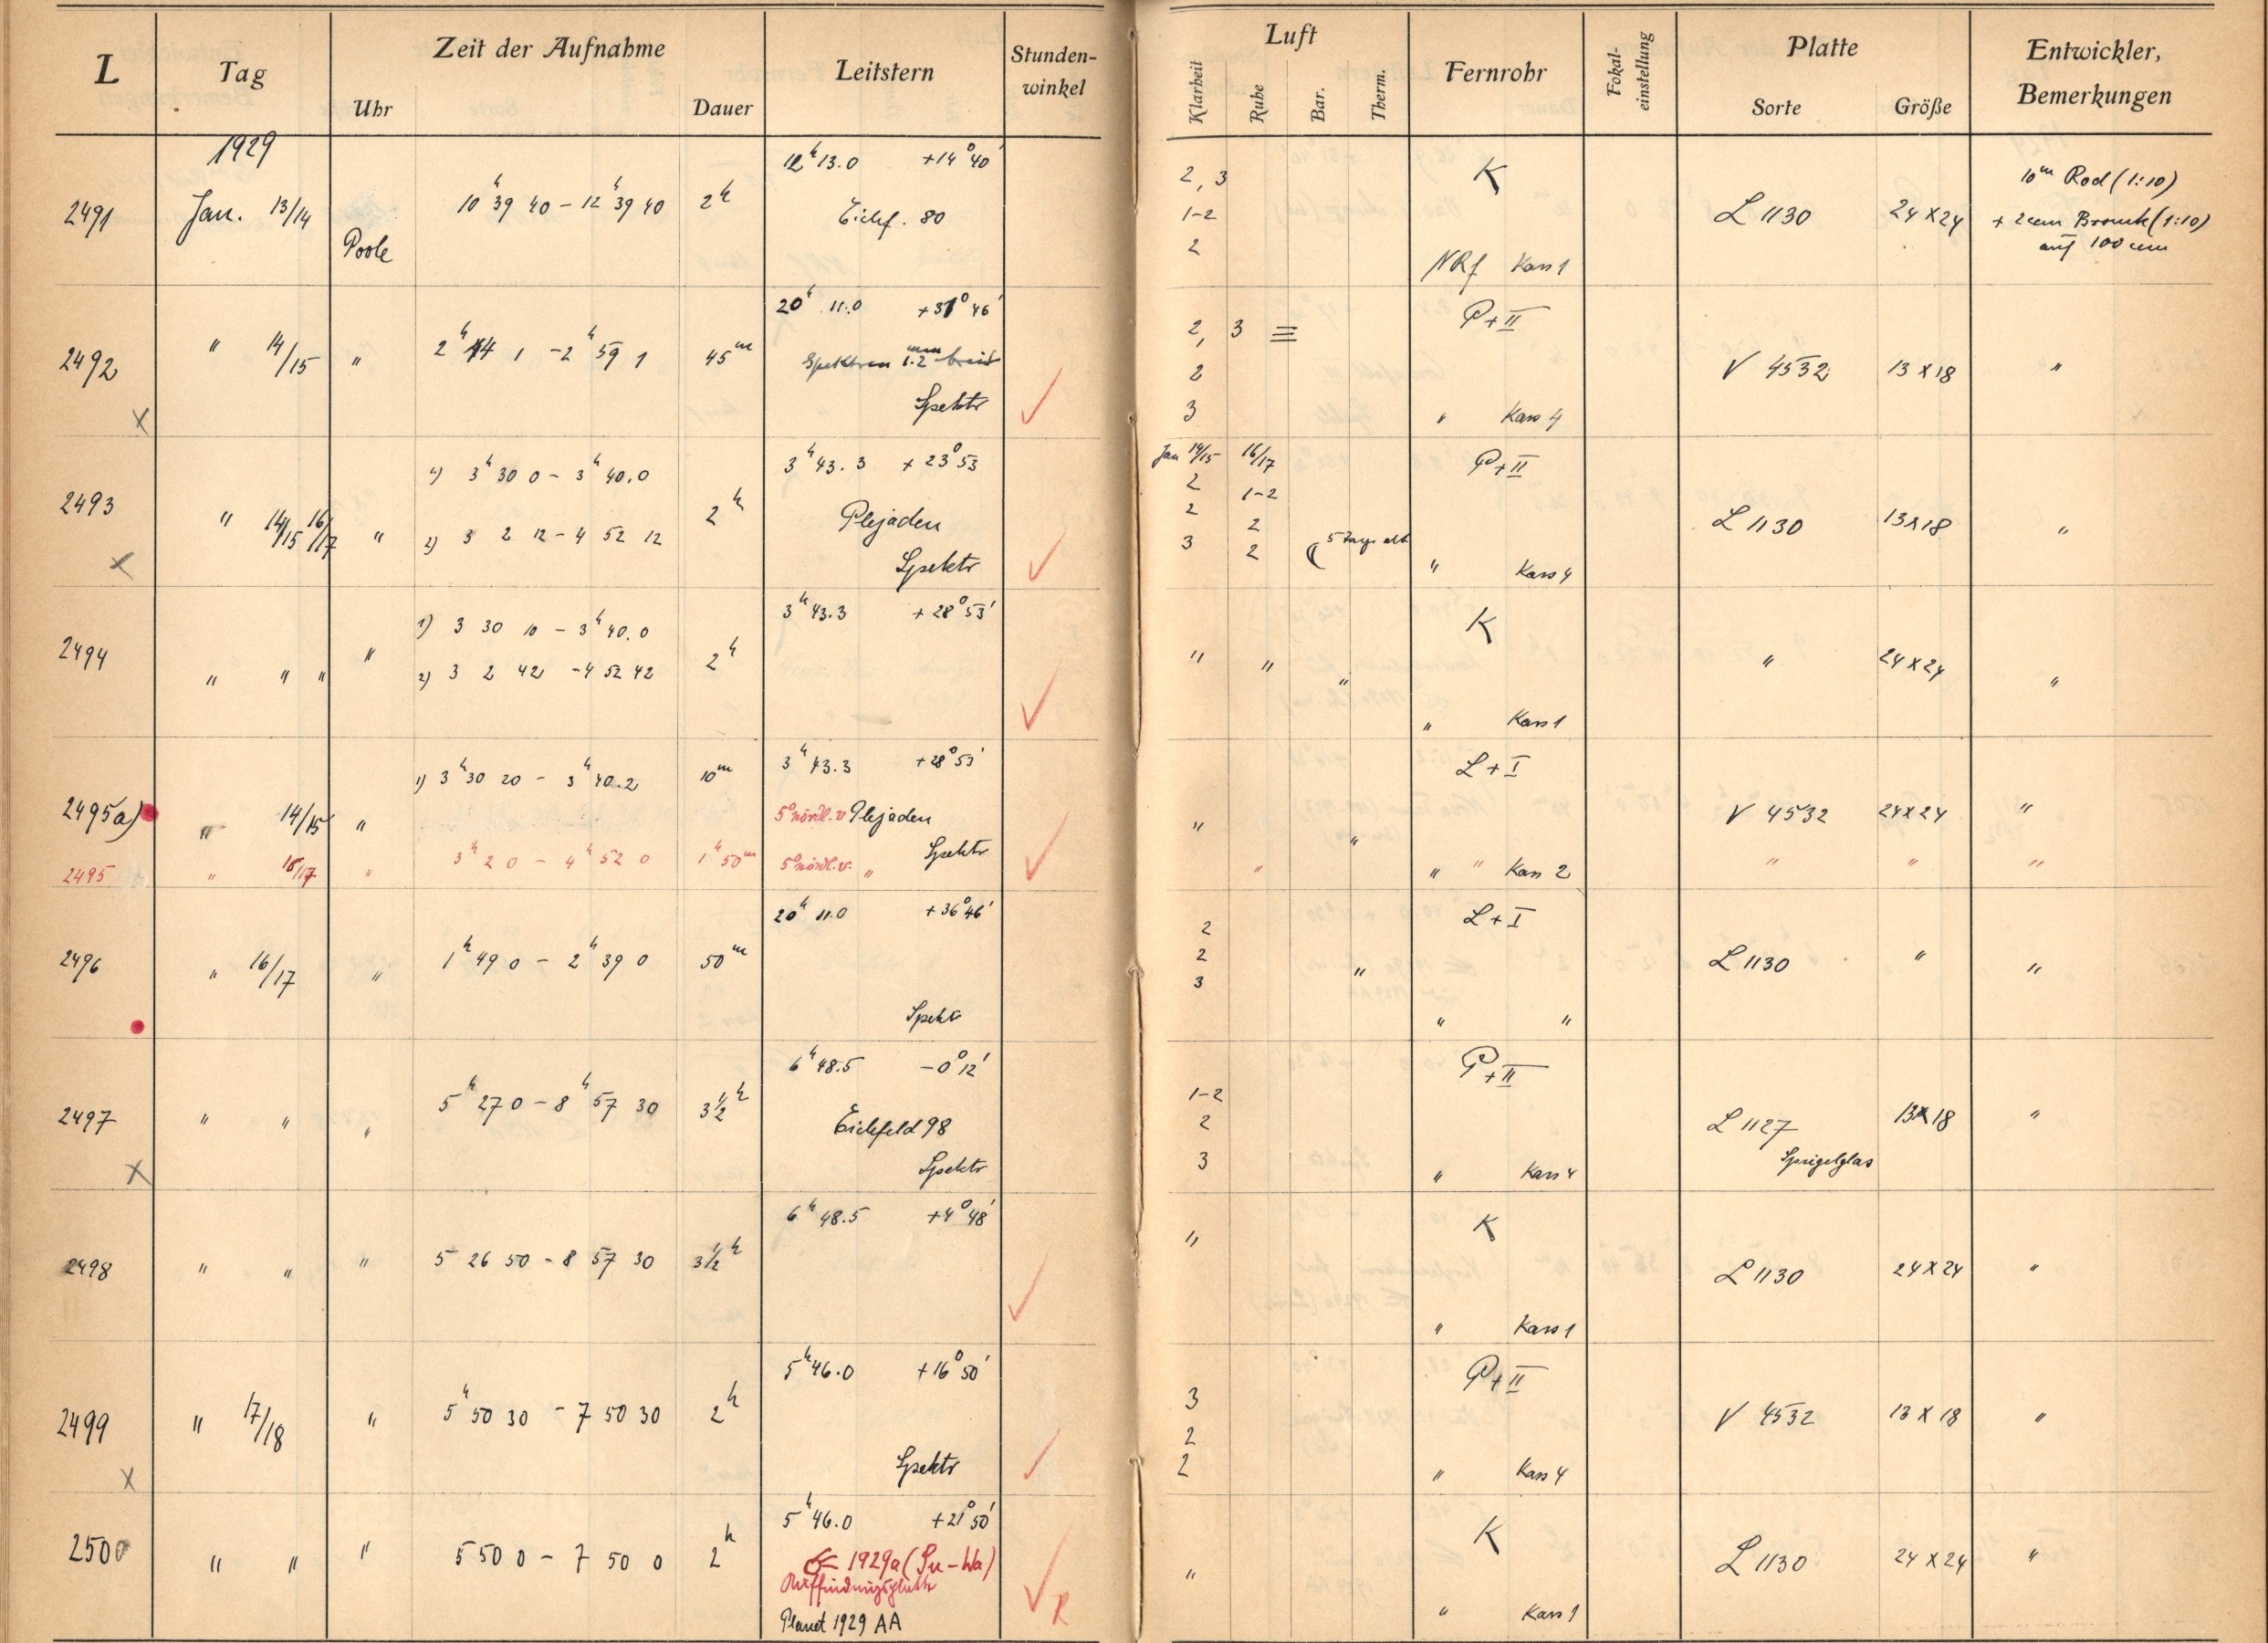 L Tag Zeit der Aufnahme Leitstern Stunden-winkel Luft Fernrohr Fokal-einstellung Platte Entwickler, Bemerkungen
Uhr Dauer Klarheit Ruhe Bar. Therm. Sorte Größe
1929
12h 13.0 +14° 40'
2491 Jan. 13/14 Poole 10h 39 40 – 12h 39 40 2h
Eichf. 80
2, 3
1-2
2
K
NRf Kass 1
L 1130 24 X 24
10m Rod (1:10)
+ 2ccm Bromk (1:10)
auf 100 ccm
20h 11.0 +37° 46'
2492 " 14/15 " 2h 14 1 – 2h 59 1 45m
Spektren 1.2 mm breit
Spektr
X
2, 3 ≡
2
3
P + II
" Kass 4
V 4532 13 X 18 "
3h 43.3 + 23° 53
2493 " 14/15 16/17 " 1) 3h 30 0 – 3h 40.0
2) 3 2 12 – 4 52 12
2h
Plejaden
Spektr
X
Jan 14/15 16/17
2 1-2
2 2
3 2 ( 5 Tage alt
P + II
" Kass 4
L 1130 13 X 18 "
3h 43.3 + 28° 53'
2494 " " " " 1) 3 30 10 – 3h 40.0
2) 3 2 42 – 4 52 42
2h
" " "
K
" Kass 1
" 24 X 24 "
3h 43.3 +28° 53'
2495a) " 14/15 " 1) 3h 30 20 – 3h 40.2 10m
5° nördl. v Plejaden
Spektr
2495 " 16/17 " 3h 2 0 – 4h 52 0 1h 50m 5° nördl. v. "
" "
L + I
V 4532 24 X 24 "
" " " Kass 2 " " "
20h 11.0 + 36° 46'
2496 " 16/17 " 1h 49 0 – 2h 39 0 50m
Spektr
2
2
3
"
L + I
" "
L 1130 " "
6h 48.5 – 0° 12'
2497 " " " 5h 27 0 – 8h 57 30 3½h
Eichfeld 98
Spektr
X
1-2
2
3
P + II
" Kass 4
L 1127
Spiegelglas
13 X 18 "
6h 48.5 +4° 48'
2498 " " " 5 26 50 – 8 57 30 3½h
"
K
" Kass 1
L 1130 24 X 24 "
5h 46.0 + 16° 50'
2499 " 17/18 " 5h 50 30 – 7 50 30 2h
Spektr
X
3
2
2
P + II
" Kass 4
V 4532 13 X 18 "
5h 46.0 +21° 50'
2500 " " " 5 50 0 – 7 50 0 2h
1929a (Su – Wa)
Auffindungsplatte
Planet 1929 AA
R
"
K
" Kass 1
L 1130 24 X 24 "